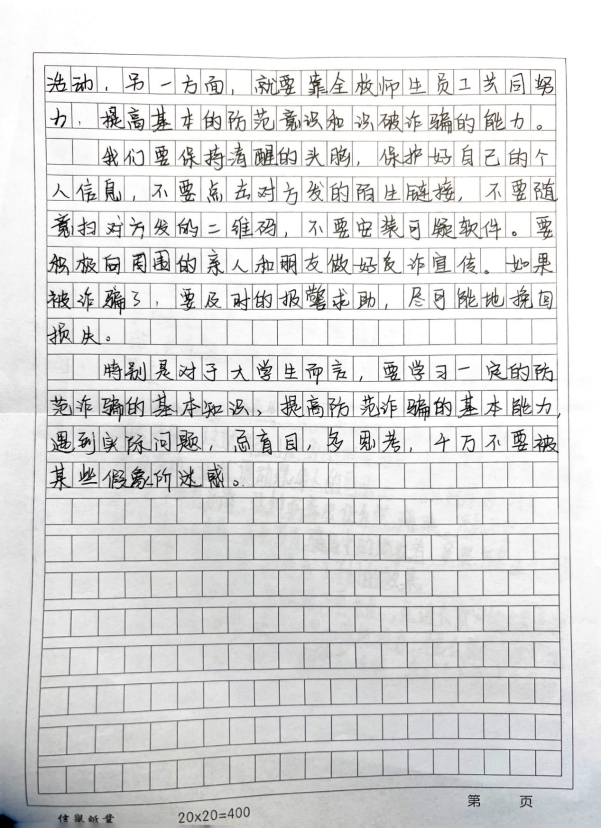 活动，另一方面，就要靠全校师生员工共同努
力，提高基本的防范意识和识破诈骗的能力。
我们要保持清醒的头脑，保护好自己的个
人信息，不要点击对方发的陌生链接，不要随
意扫对方发的二维码，不要安装可疑软件。要
积极向周围的亲人和朋友做好反诈宣传。如果
被诈骗了，要及时的报警求助，尽可能地挽回
损失。
特别是对于大学生而言，要学习一定的防
范诈骗的基本知识、提高防范诈骗的基本能力，
遇到实际问题，忌盲目，多思考，千万不要被
某些假象所迷惑。
第 页
20×20=400